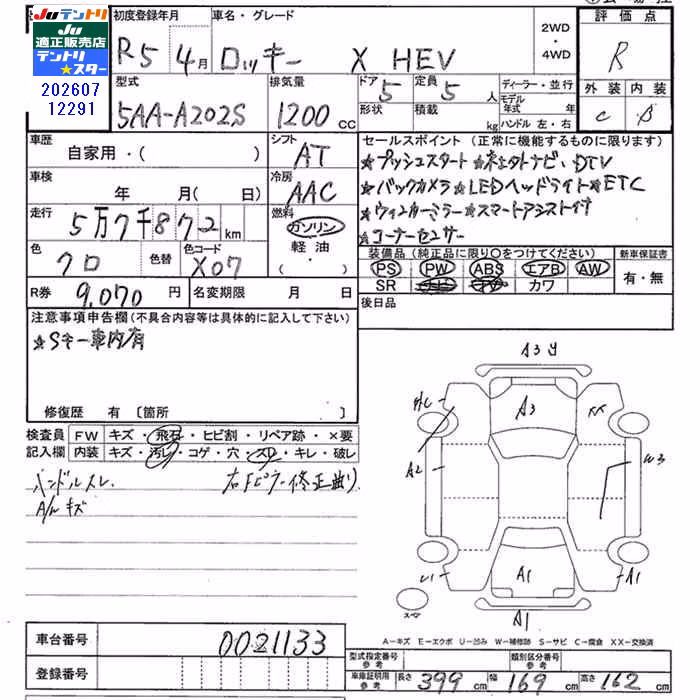 JUテントリ
JU
適正販売店
テントリ
★スター
202607
12291
初度登録年月
車名・グレード
評価点
R5 4月
ロッキー X HEV
2WD
・
4WD
R
型式
排気量
ドア 5
定員 5 人
ディーラー・並行
外装 内装
5AA-A202S
1200 cc
形状
積載 kg
モデル年式 年
ハンドル 左・右
C B
車歴
自家用・( )
シフト
AT
セールスポイント (正常に機能するものに限ります)
★プッシュスタート★ネxタトナビ、DTV
★バックカメラ★LEDヘッドライト★ETC
★ウィンカーミラー★スマートアシスト付
★コーナーセンサー
車検
年 月(日)
冷房
AAC
走行
5万7千872 km
燃料
ガソリン
軽油
( ・ )
色
クロ
色替
色コード
X07
装備品 (純正品に限り○をつけてください)
新車保証書
PS PW ABS エアB AW
有・無
SR ナビ カワ
R券 9,070 円
名変期限 月 日
後日品
注意事項申告欄(不具合内容等は具体的に記入して下さい)
★Sキー車内有
修復歴 有 〔箇所 〕
検査員
記入欄
FW キズ・飛石・ヒビ割・リペア跡・×要
内装 キズ・汚レ・コゲ・穴・スレ・キレ・破レ
ハンドルスレ
右Fピラー修正曲り
A/W キズ
A3 Y
A3
XX
A2
W3
U1
A1
A1
A1
スペア
A-キズ E-エクボ U-凹み W-補修跡 S-サビ C-腐食 XX-交換済
車台番号
0021133
登録番号
型式指定番号
参考
類別区分番号
参考
車庫証明用
参考
長さ 399 cm 幅 169 cm 高さ 162 cm